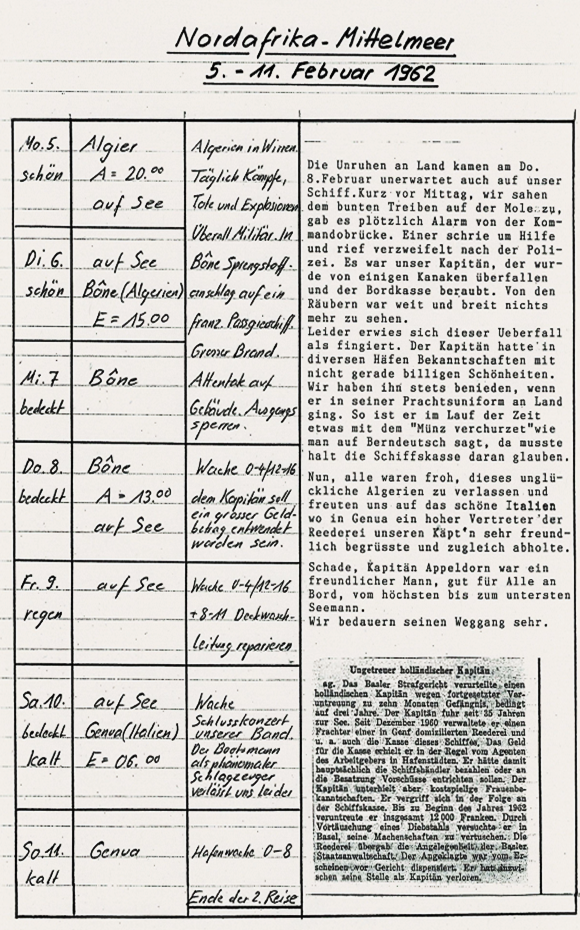 Nordafrika - Mittelmeer
5. - 11. Februar 1962
Mo. 5.
schön
Algier
A = 20.00
auf See
Algerien in Wirren.
Täglich Kämpfe,
Tote und Explosionen
Überall Militär. In
Di. 6.
schön
auf See
Bône (Algerien)
E = 15.00
Bône Sprengstoff-
anschlag auf ein
franz. Passagierschiff.
Grosser Brand.
Mi. 7
bedeckt
Bône
Attentak auf
Gebäude. Ausgangs
sperren.
Do. 8.
bedeckt
Bône
A = 13.00
auf See
Wache 0-4/12-16
dem Kapitän soll
ein grosser Geld-
betrag entwendet
worden sein.
Fr. 9.
regen
auf See
Wache 0-4/12-16
+ 8-11 Deckwasch-
leitung reparieren
Sa. 10.
bedeckt
kalt
auf See
Genua (Italien)
E = 06.00
Wache
Schlusskonzert
unserer Band.
Der Bootsmann
als phänomaler
Schlagzeuger
verlässt uns leider
So. 11.
kalt
Genua
Hafenwache 0-8
Ende der 2. Reise
Die Unruhen an Land kamen am Do.
8.Februar unerwartet auch auf unser
Schiff.Kurz vor Mittag, wir sahen
dem bunten Treiben auf der Mole zu,
gab es plötzlich Alarm von der Kom-
mandobrücke. Einer schrie um Hilfe
und rief verzweifelt nach der Poli-
zei. Es war unser Kapitän, der wur-
de von einigen Kanaken überfallen
und der Bordkasse beraubt. Von den
Räubern war weit und breit nichts
mehr zu sehen.
Leider erwies sich dieser Ueberfall
als fingiert. Der Kapitän hatte in
diversen Häfen Bekanntschaften mit
nicht gerade billigen Schönheiten.
Wir haben ihn stets benieden, wenn
er in seiner Prachtsuniform an Land
ging. So ist er im Lauf der Zeit
etwas mit dem "Münz verchurzet"wie
man auf Berndeutsch sagt, da musste
halt die Schiffskasse daran glauben.
Nun, alle waren froh, dieses unglü-
ckliche Algerien zu verlassen und
freuten uns auf das schöne Italien
wo in Genua ein hoher Vertreter der
Reederei unseren Käpt'n sehr freund-
lich begrüsste und zugleich abholte.
Schade, Kapitän Appeldorn war ein
freundlicher Mann, gut für Alle an
Bord, vom höchsten bis zum untersten
Seemann.
Wir bedauern seinen Weggang sehr.
Ungetreuer holländischer Kapitän
ag. Das Basler Strafgericht verurteilte einen
holländischen Kapitän wegen fortgesetzter Ver-
untreuung zu zehn Monaten Gefängnis, bedingt
auf drei Jahre. Der Kapitän fuhr seit 35 Jahren
zur See. Seit Dezember 1960 verwaltete er einen
Frachter einer in Genf domizilierten Reederei und
u. a. auch die Kasse dieses Schiffes. Das Geld
für die Kasse erhielt er in der Regel vom Agenten
des Arbeitgebers in Hafenstädten. Er hätte damit
hauptsächlich die Schiffshändler bezahlen oder an
die Besatzung Vorschüsse entrichten sollen. Der
Kapitän unterhielt aber kostspielige Frauenbe-
kanntschaften. Er vergriff sich in der Folge an
der Schiffskasse. Bis zu Beginn des Jahres 1962
veruntreute er insgesamt 12 000 Franken. Durch
Vortäuschung eines Diebstahls versuchte er in
Basel, seine Machenschaften zu vertuschen. Die
Reederei übergab die Angelegenheit der Basler
Staatsanwaltschaft. Der Angeklagte war vom Er-
scheinen vor Gericht dispensiert. Er hat inzwi-
schen seine Stelle als Kapitän verloren.